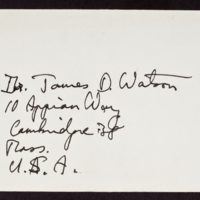 Dr. James D. Watson
10 Appian Way
Cambridge 
Mass.
U.S.A.